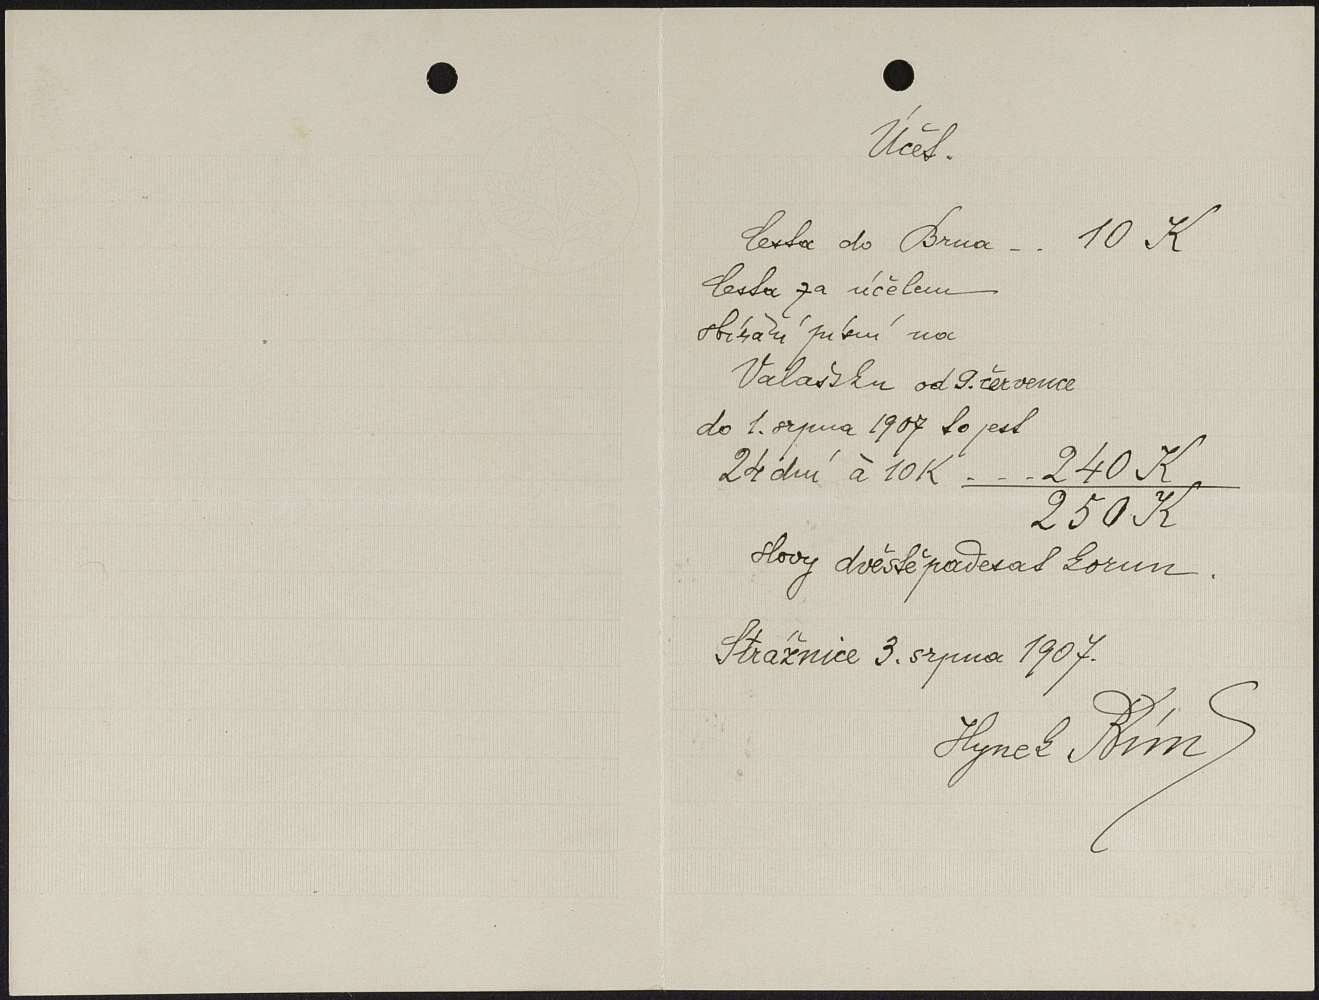 Účet.
Cesta do Brna - . 10 K
Cesta za účelem
sbírání písní na
Valašsku od 9. července
do 1. srpna 1907 to jest
24 dní à 10 K . - . 240 K
250 K
slovy dvěstěpadesat korun.
Strážnice 3. srpna 1907.
Hynek Bím